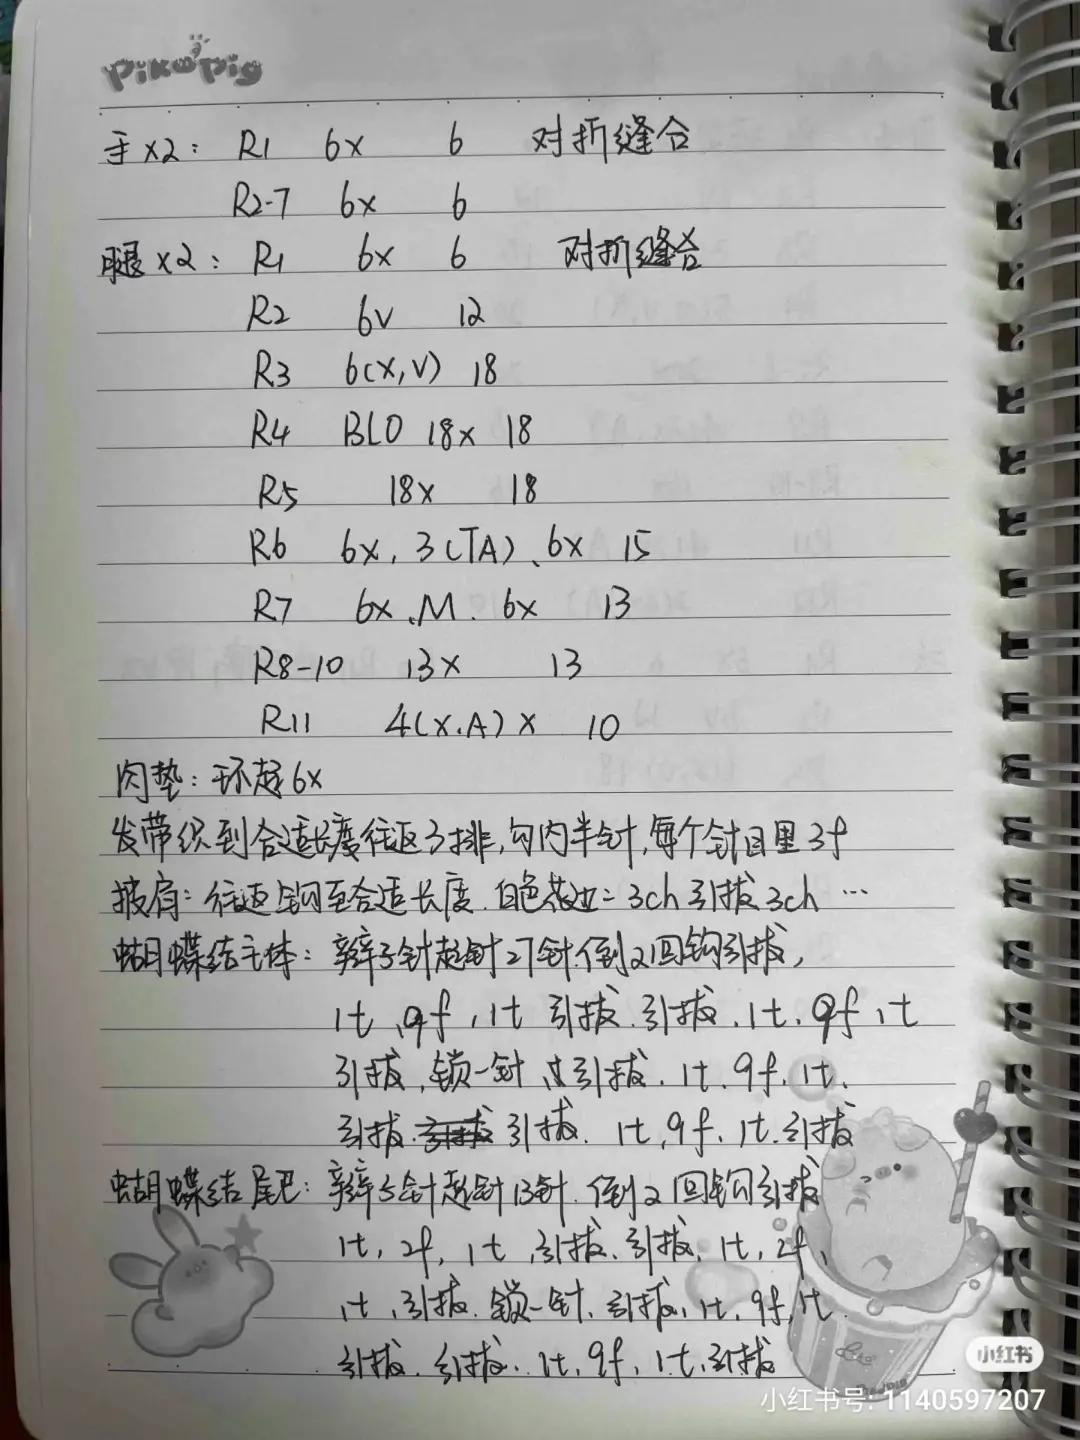 PikoPig
手x2: R1 6x 6 对折缝合
R2-7 6x 6
腿x2: R1 6x 6 对折缝合
R2 6v 12
R3 6(x,v) 18
R4 BLO 18x 18
R5 18x 18
R6 6x, 3(TA)、6x 15
R7 6x、M. 6x 13
R8-10 13x 13
R11 4(x.A)x 10
肉垫: 环起6x
发带织到合适长度往返3排,勾内半针,每个针目里3f
披肩: 往返钩至合适长度. 白色花边: 3ch引拔3ch …
蝴蝶结主体: 辫子针起针27针.倒2回钩引拔,
1t、9f,1t 引拔.引拔.1t.9f,1t
引拔,锁一针 引拔.1t.9f.1t.
引拔. 引拔. 1t,9f,1t.引拔
蝴蝶结尾巴: 辫子针起针13针.倒2回钩引拔
1t,2f,1t,引拔.引拔,1t,2f,
1t,引拔.锁一针.引拔,1t.9f,1t
引拔.引拔.1t,9f,1t.引拔
小红书
小红书号: 1140597207